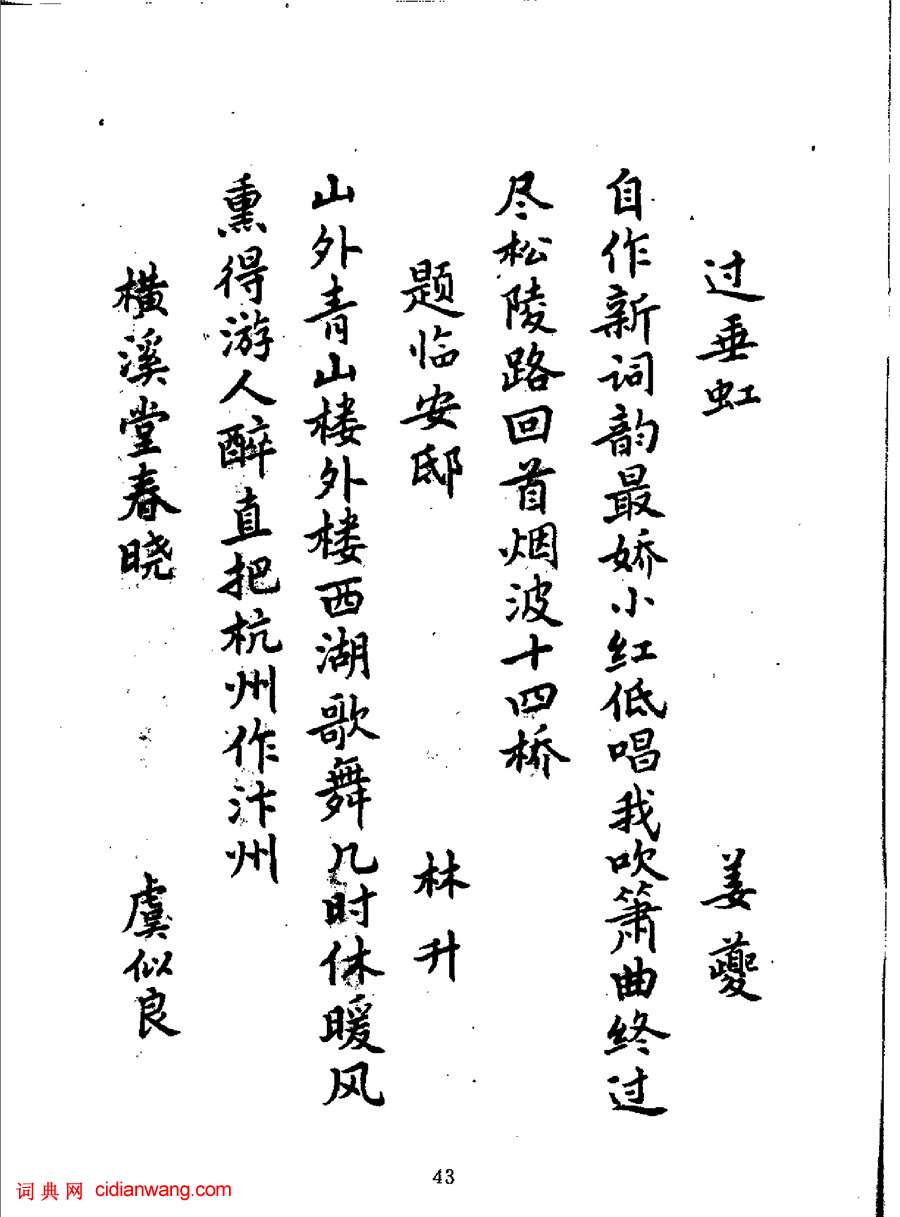 过垂虹 姜夔
自作新词韵最娇小红低唱我吹箫曲终过
尽松陵路回首烟波十四桥
题临安邸 林升
山外青山楼外楼西湖歌舞几时休暖风
熏得游人醉直把杭州作汴州
横溪堂春晓 虞似良
43
词典网 cidianwang.com